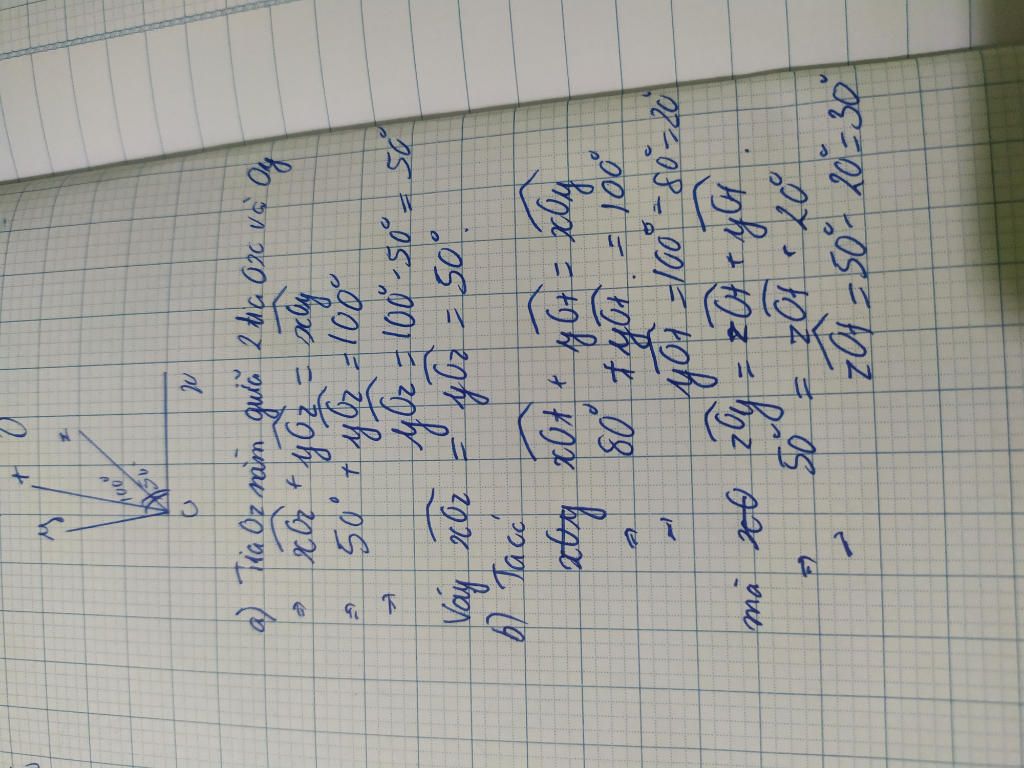 y t z
100°
50°
O x
a) Tia Oz nằm giữa 2 tia Ox và Oy
⇒ xOz + yOz = xOy
⇒ 50° + yOz = 100°
⇒ yOz = 100° - 50° = 50°
Vậy xOz = yOz = 50°.
b) Ta có xOt + yOt = xOy
xOy
⇒ 80° + yOt = 100°
⇒ yOt = 100° - 80° = 20°
mà xO zOy = zOt + yOt
⇒ 50° = zOt + 20°
⇒ zOt = 50° - 20° = 30°